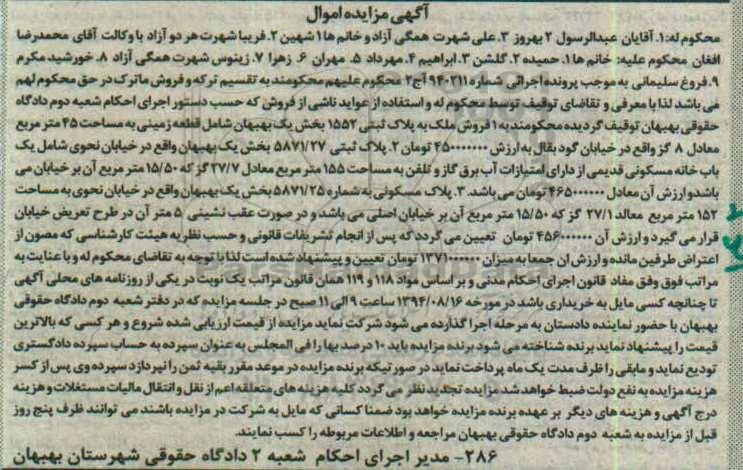 آگهی مزایده اموال
محکوم له: ۱. آقایان عبدالرسول ۲ بهروز ۳. علی شهرت همگی آزاد و خانم ها ۱ شهین ۲. فریبا شهرت هر دو آزاد با وکالت آقای محمدرضا
افغان محکوم علیه: خانم ها ۱. حمیده ۲. گلشن ۳. ابراهیم ۴. مهرداد ۵. مهران ۶. زهرا ۷. ژینوس شهرت همگی آزاد ۸. خورشید مکرم
۹. فروغ سلیمانی به موجب پرونده اجرائی شماره ۹۴۰۲۱۱ آج ۲ محکوم علیهم محکومند به تقسیم ترکه و فروش ماترک در حق محکوم لهم
می باشد لذا با معرفی و تقاضای توقیف توسط محکوم له و استفاده از عواید ناشی از فروش که حسب دستور اجرای احکام شعبه دوم دادگاه
حقوقی بهبهان توقیف گردیده محکومند به ۱ فروش ملک به پلاک ثبتی ۱۵۵۲ بخش یک بهبهان شامل قطعه زمینی به مساحت ۴۵ متر مربع
معادل ۸ گز واقع در خیابان گود بقال به ارزش ۴۵۰۰۰۰۰۰۰ تومان ۲. پلاک ثبتی ۵۸۷۱/۲۷ بخش یک بهبهان واقع در خیابان نحوی شامل یک
باب خانه مسکونی قدیمی از دارای امتیازات آب برق گاز و تلفن به مساحت ۱۵۵ متر مربع معادل ۲۷/۷ گز که ۱۵/۵۰ متر مربع آن بر خیابان می
باشد و ارزش آن معادل ۴۶۵۰۰۰۰۰۰ تومان می باشد. ۳. پلاک مسکونی به شماره ۵۸۷۱/۲۵ بخش یک بهبهان واقع در خیابان نحوی به مساحت
۱۵۲ متر مربع معالد ۲۷/۱ گز که ۱۵/۵۰ متر مربع آن بر خیابان اصلی می باشد و در صورت عقب نشینی ۵ متر آن در طرح تعریض خیابان
قرار می گیرد و ارزش آن ۴۵۶۰۰۰۰۰۰ تومان تعیین می گردد که پس از انجام تشریفات قانونی و حسب نظریه هیئت کارشناسی که مصون از
اعتراض طرفین مانده و ارزش ان جمعا به میزان ۱۳۷۱۰۰۰۰۰۰ تومان تعیین و پیشنهاد شده است لذا با توجه به تقاضای محکوم له و با عنایت به
مراتب فوق وفق مفاد قانون اجرای احکام مدنی و بر اساس مواد ۱۱۸ و ۱۱۹ همان قانون مراتب یک نوبت در یکی از روزنامه های محلی آگهی
تا چنانچه کسی مایل به خریداری باشد در مورخه ۱۳۹۴/۰۸/۱۶ ساعت ۹ الی ۱۱ صبح در جلسه مزایده که در دفتر شعبه دوم دادگاه حقوقی
بهبهان با حضور نماینده دادستان به مرحله اجرا گذارده می شود شرکت نماید مزایده از قیمت ارزیابی شده شروع و هر کسی که بالاترین
قیمت را پیشنهاد نماید برنده شناخته می شود برنده مزایده باید ۱۰ درصد بها را فی المجلس به عنوان سپرده به حساب سپرده دادگستری
تودیع نماید و مابقی را ظرف مدت یک ماه پرداخت نماید در صورتیکه برنده مزایده در موعد مقرر بقیه ثمن را نپردازد سپرده وی پس از کسر
هزینه مزایده به نفع دولت ضبط خواهد شد مزایده تجدید نظر می گردد کلیه هزینه های متعلقه اعم از نقل و انتقال مالیات مستغلات و هزینه
درج آگهی و هزینه های دیگر بر عهده برنده مزایده خواهد بود ضمنا کسانی که مایل به شرکت در مزایده باشند می توانند ظرف پنج روز
قبل از مزایده به شعبه دوم دادگاه حقوقی بهبهان مراجعه و اطلاعات مربوطه را کسب نمایند.
۲۸۶- مدیر اجرای احکام شعبه ۲ دادگاه حقوقی شهرستان بهبهان